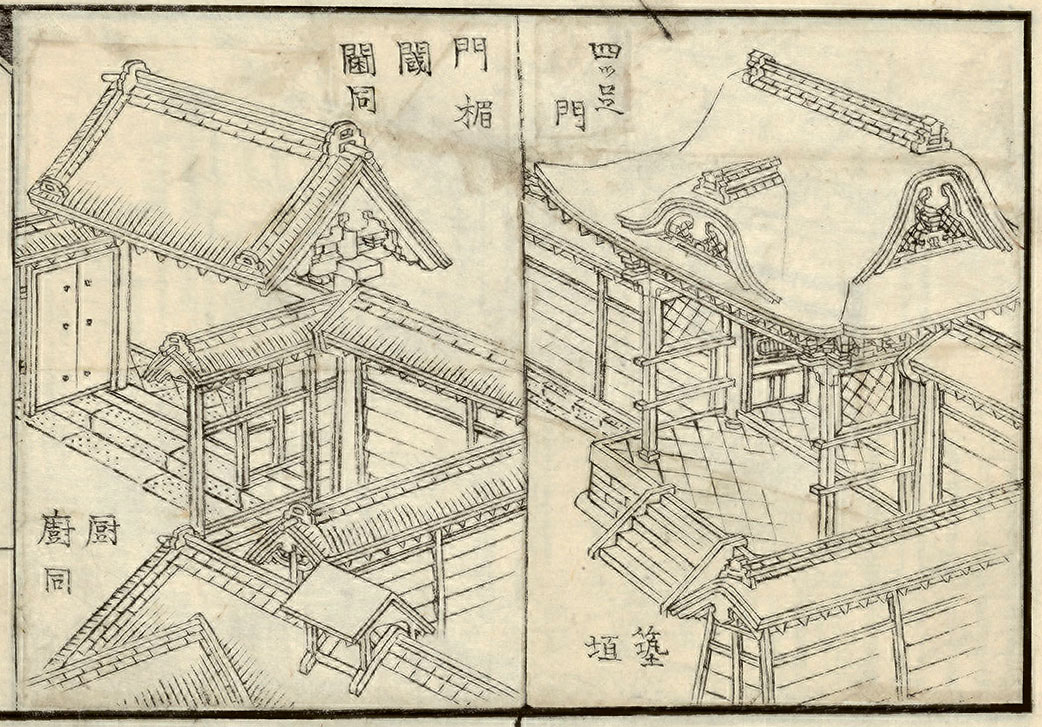 四ツ足
門
築
垣
門楣
閾
閫同
厨
廚同